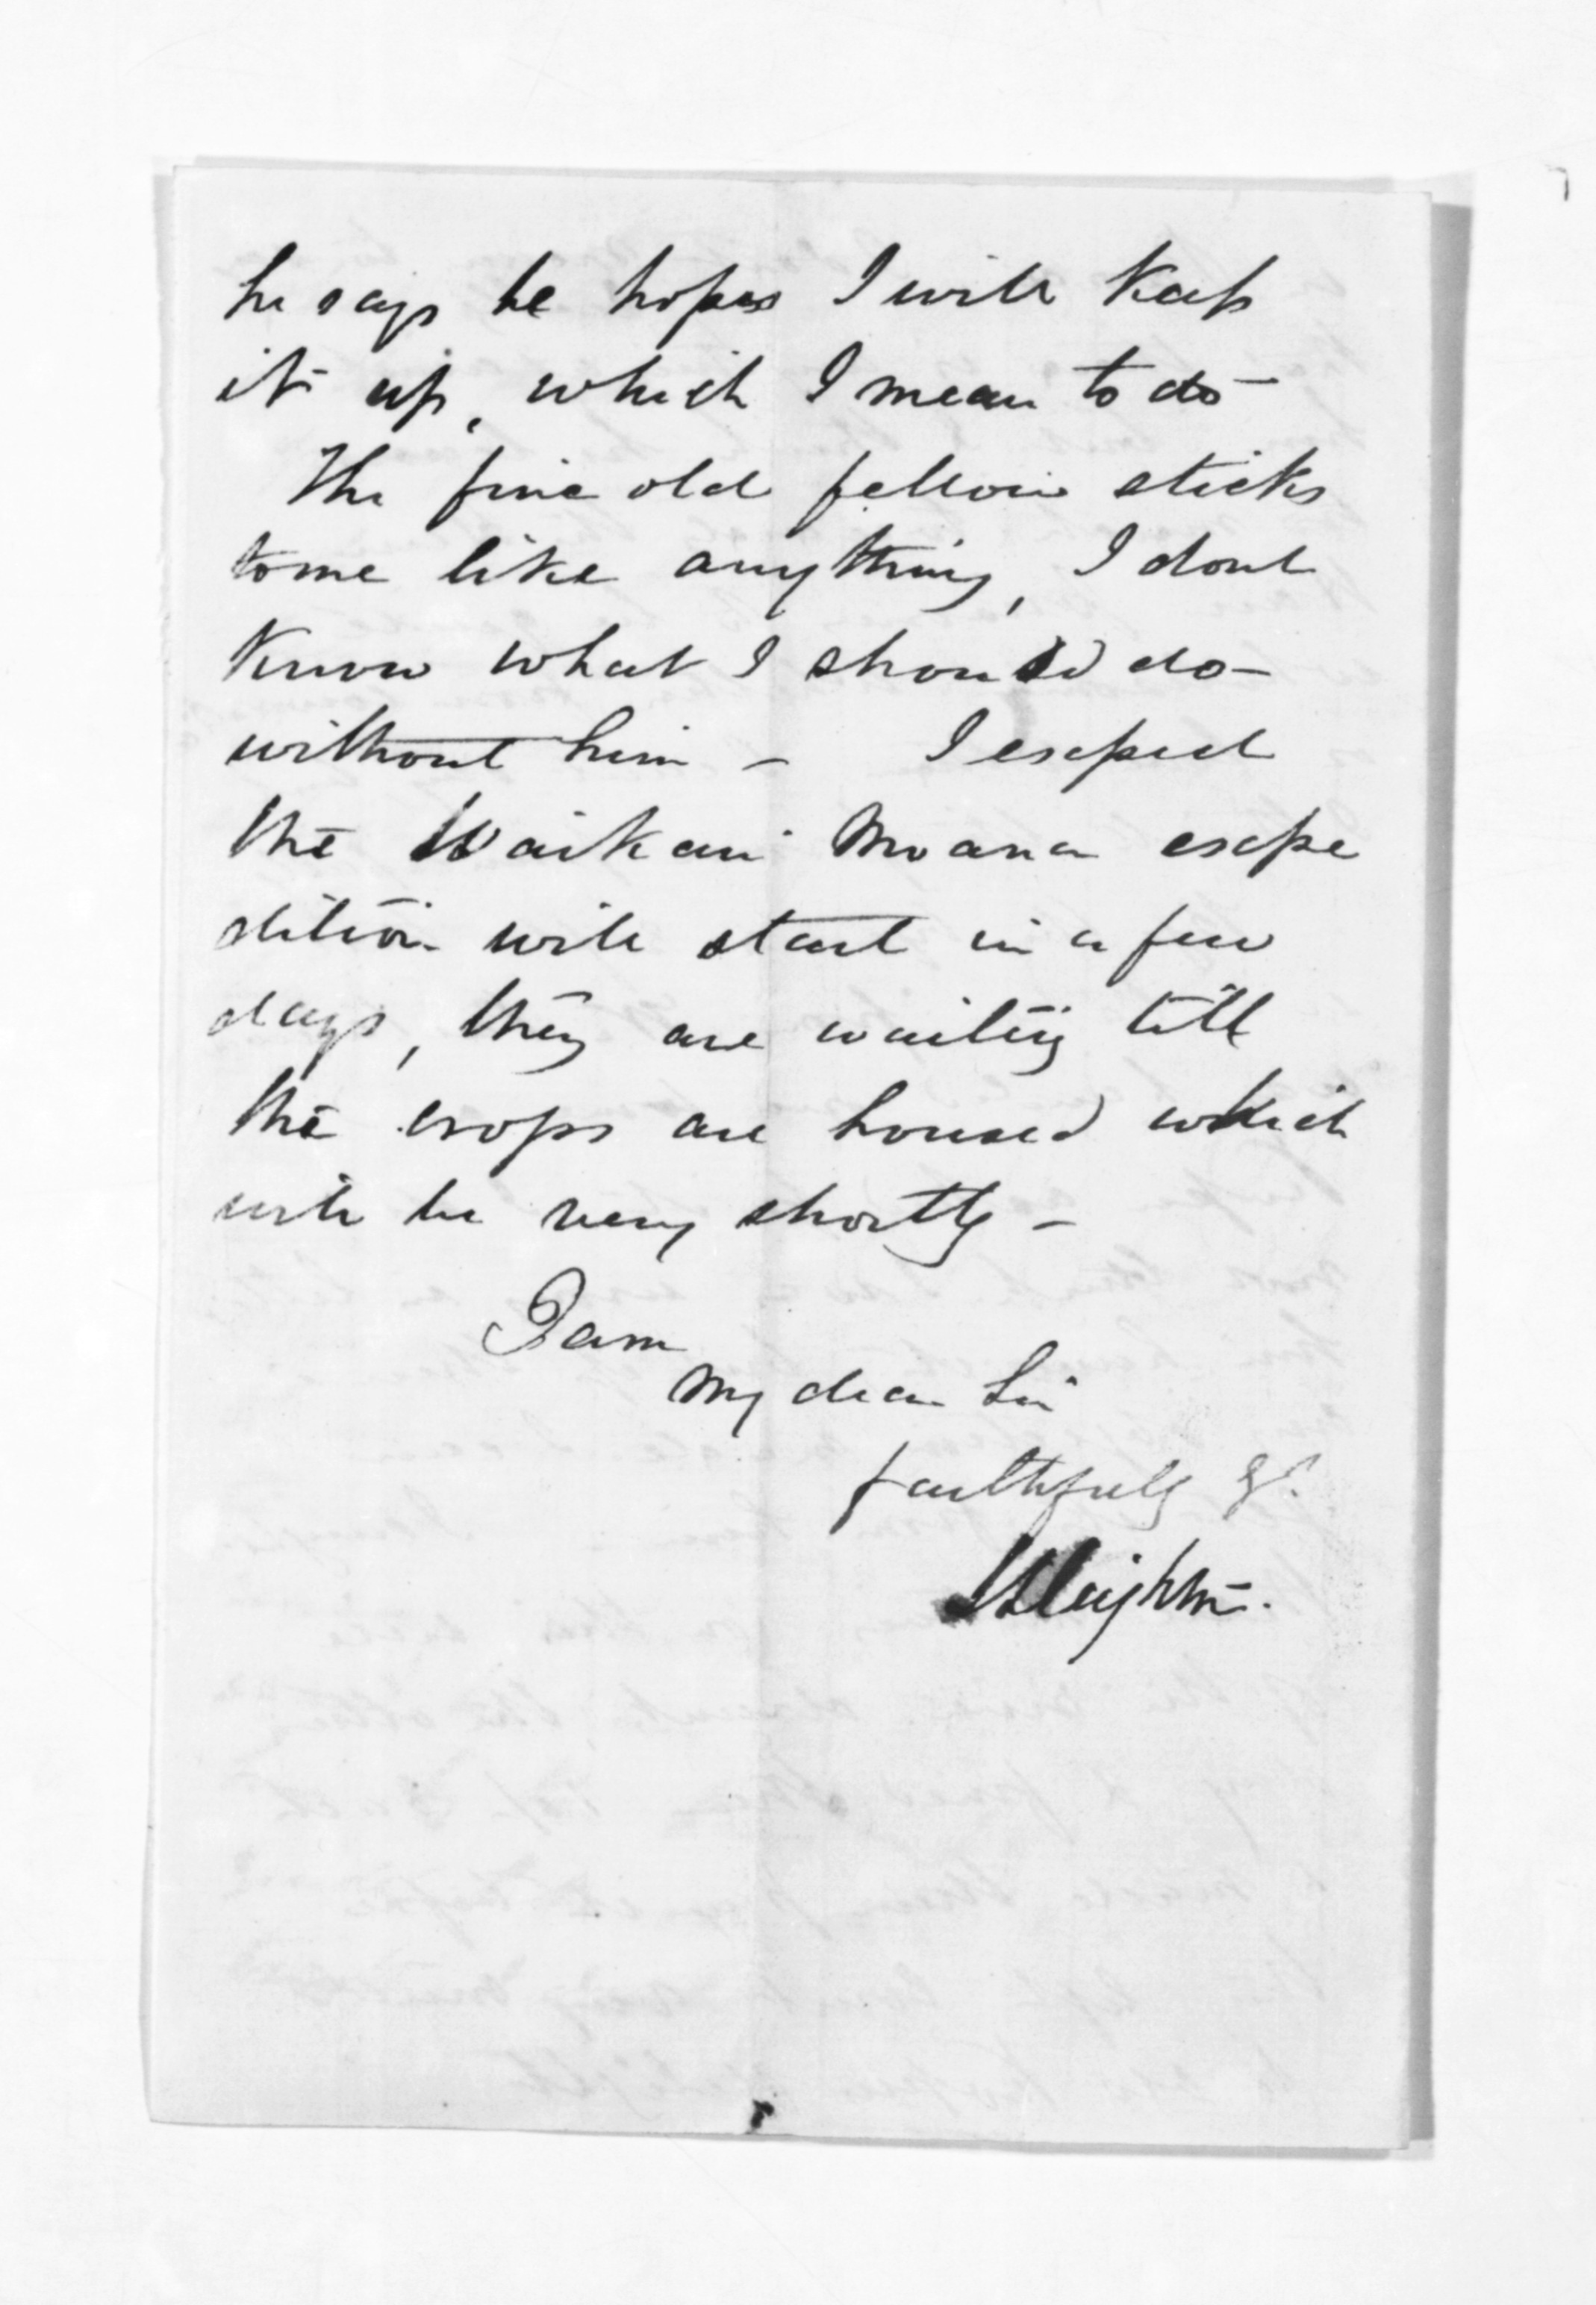 he says he hopes I will keep
it up, which I mean to do -
The fine old fellow sticks
to me like anything, I dont
know what I should do -
without him - I expect
the Waikari Moana expe
dition will start in a few
days, they are waiting till
the crops are housed which
will be very shortly -
I am
My dear Sir
faithfully Yrs.